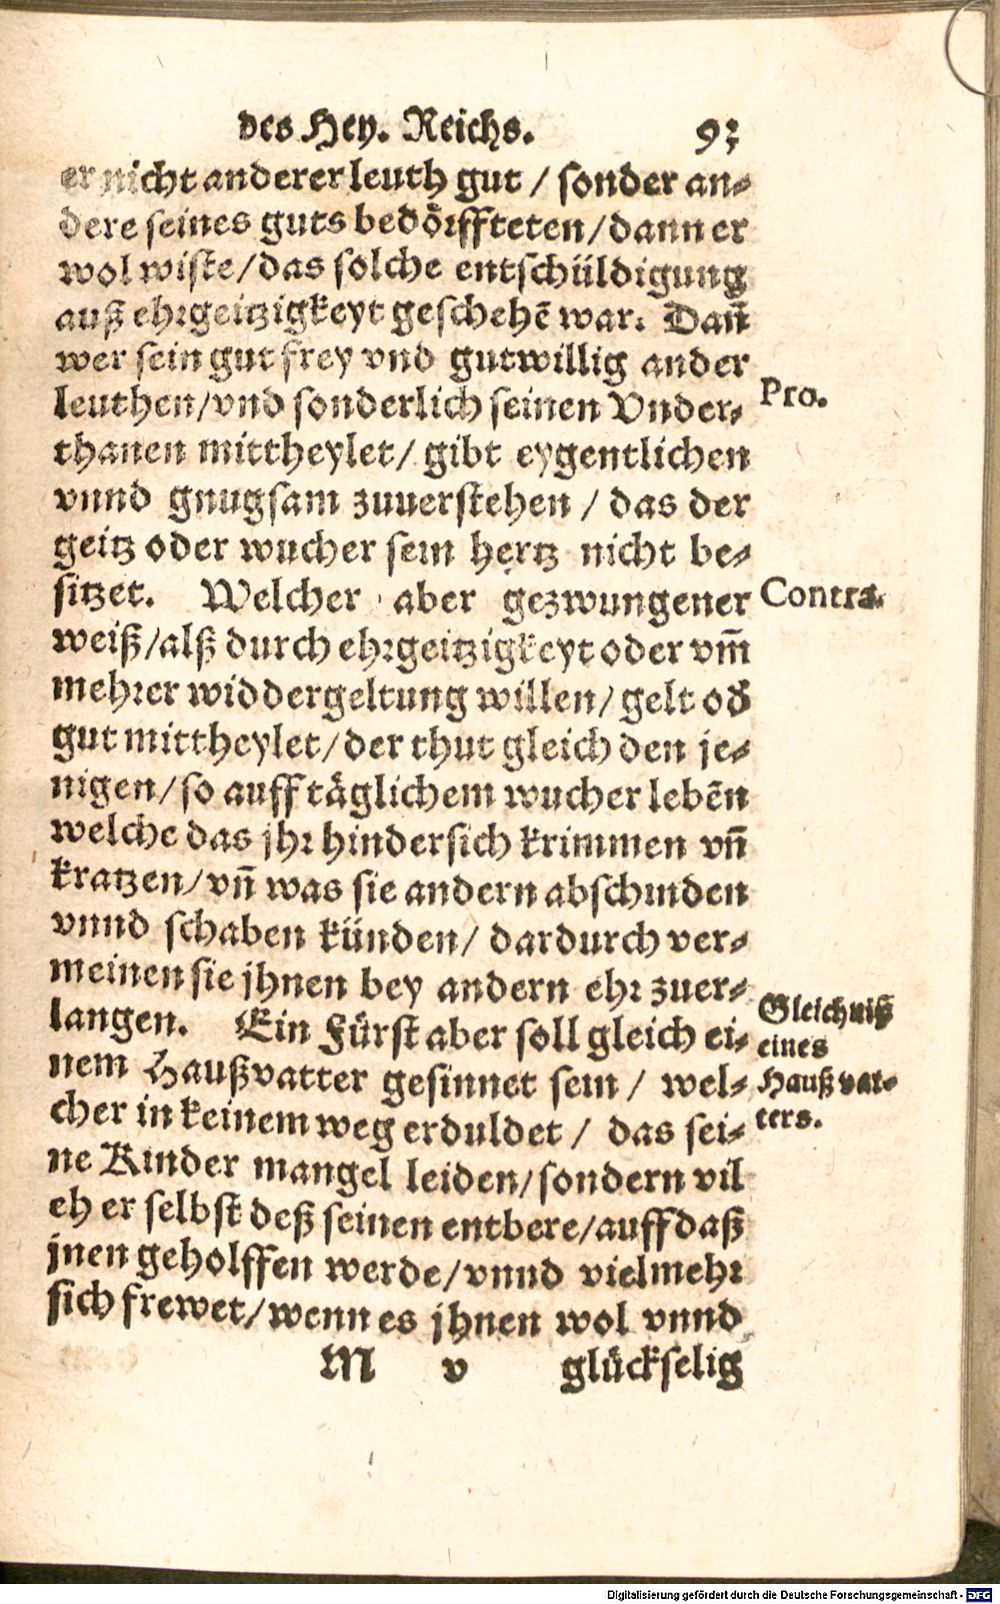 des Hey. Reichs. 93
er nicht anderer leuth gut / sonder an-
dere seines guts bedörffteten / dann er
wol wiste / das solche entschüldigung
auß ehrgeitzigkeyt geschehē war. Dañ
wer sein gut frey vnd gutwillig ander
leuthen / vnd sonderlich seinen Vnder-
Pro.
thanen mittheylet / gibt eygentlichen
vnnd gnugsam zuuerstehen / das der
geitz oder wucher sein hertz nicht be-
sitzet. Welcher aber gezwungener
Contra.
weiß / alß durch ehrgeitzigkeyt oder vm̃
mehrer widdergeltung willen / gelt od
gut mittheylet / der thut gleich den je-
nigen / so auff täglichem wucher lebēn
welche das jhr hindersich krimmen vñ
kratzen / vñ was sie andern abschinden
vnnd schaben künden / dardurch ver-
meinen sie jhnen bey andern ehr zuer-
langen. Ein Fürst aber soll gleich ei-
nem Haußvatter gesinnet sein / wel-
cher in keinem weg erduldet / das sei-
Gleichniß
eines
Haußvat-
ters.
ne Kinder mangel leiden / sondern vil
eh er selbst deß seinen entbere / auff daß
jnen geholffen werde / vnnd vielmehr
sich frewet / wenn es jhnen wol vnnd
M v glückselig
Digitalisierung gefördert durch die Deutsche Forschungsgemeinschaft - DFG